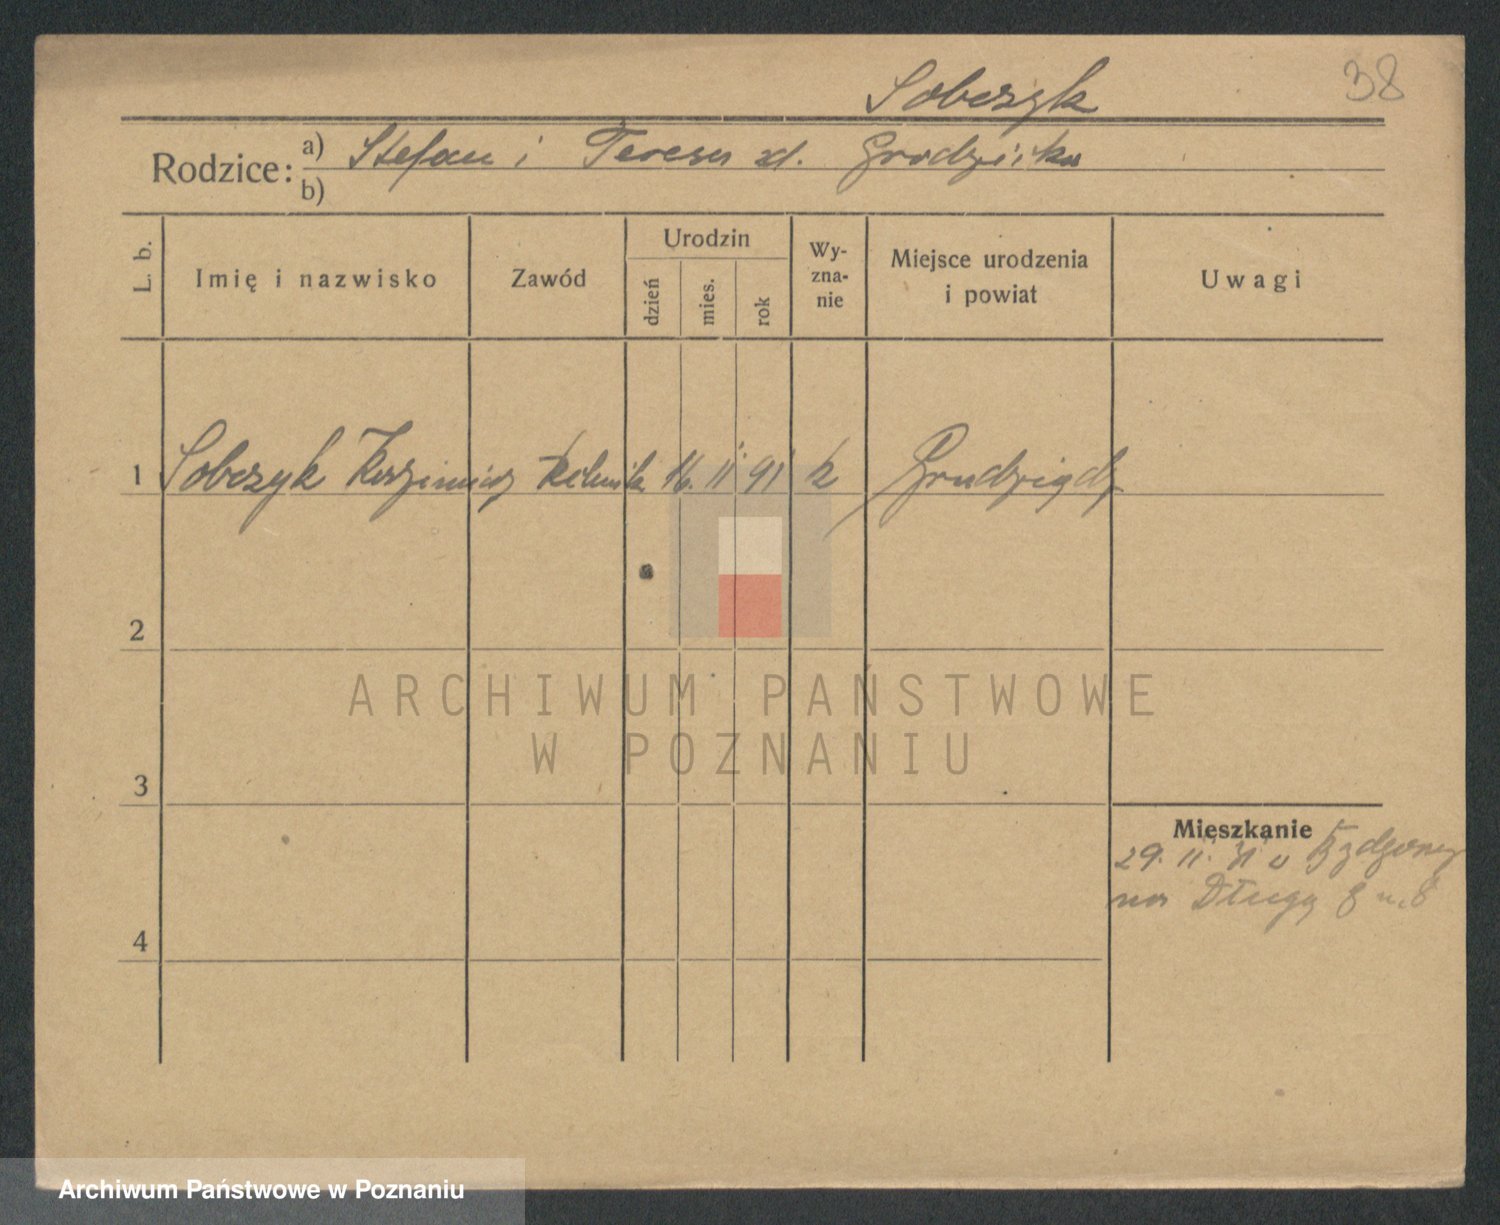 38
Sobczyk
Rodzice: a) Stefan i Teresa zd. Grodzicka
b)
L. b. Imię i nazwisko Zawód Urodzin dzień mies. rok Wy-zna-nie Miejsce urodzenia i powiat Uwagi
1 Sobczyk Kazimierz technik 16. 11 91 k Grudziądz
2
ARCHIWUM PAŃSTWOWE
W POZNANIU
3
Mieszkanie
29. 11. w Bydgoszcz
na Długą 8 m. 8
4
Archiwum Państwowe w Poznaniu